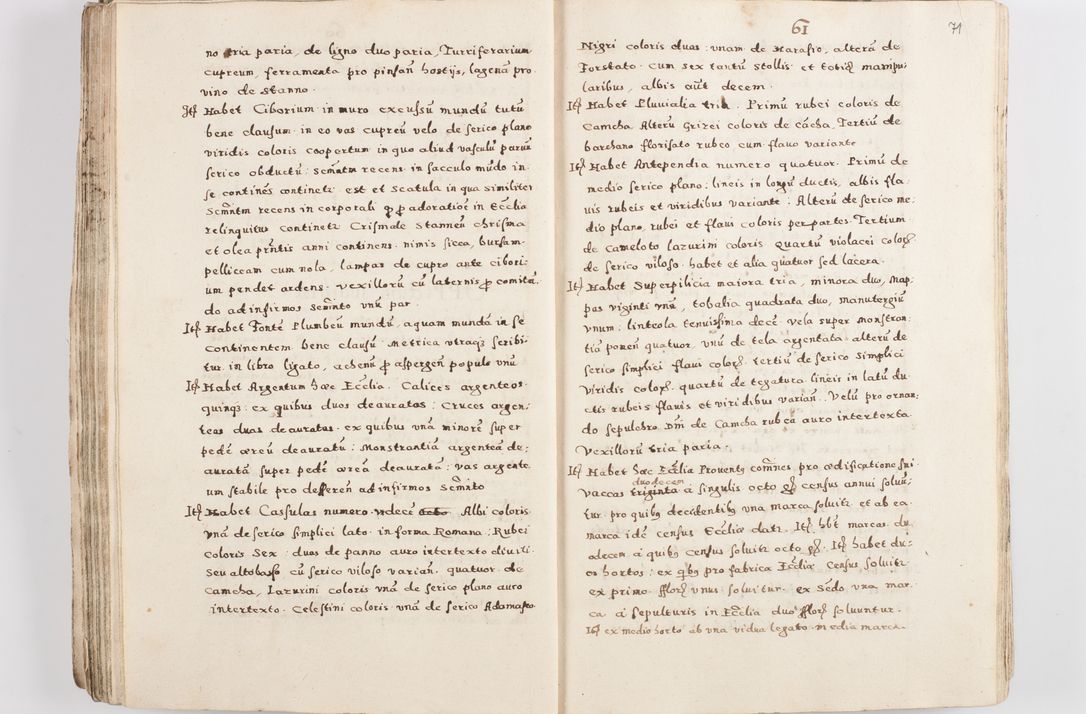 no tria paria, de ligno duo paria, Turriferarium
cupreum, ferramenta pro pinsañ hostijs, lagenã pro
vino de stanno.
Itẽ Habet Ciborium in muro excussũ mundũ tutũ
bene clausum in eo vas cupreũ velo de serico plano
viridis coloris coopertum in quo aliud vasculũ parũ
serico obductũ: Semãtm recens in sacculo mũdo in
se continẽs continetr est et Scatula in qua similiter
Scmñtm recens in corporali adoratioẽ in Eccl̃ia
relinquitur continetr Crismale Stanneũ chrisma
et olea pr̃ntis anni continens nimis sicca, bursam
pelliceam cum nola, lampas de cupro ante cibori:
um pendet ardens. vexillorũ cũ laternis p comitã:
do ad infirmos Scm̃nto vnũ par.
Itẽ Habet Fontẽ Plumbeũ mundũ, aquam mundã in se
Continentem bene clausũ. Metrica vtraqȝ scribi:
tur in libro ligato, achenũ p aspergeñ populo vnũ
Itẽ Habet Argentum hæc Eccl̃ia. Calices argenteos
quinqȝ ex quibus duos deauratos: Cruces argen:
teas duas deauratas ex quibus vnã minorẽ super
pedẽ æreũ deauratũ: Monstrantiã argenteã de:
auratã super pedẽ æreã deauratã: vas argente
um stabile pro defferen ad infirmos Scm̃nto
Itẽ Habet Cassulas numero vndecẽ octo Albi coloris
vnã de serico simplici lato in forma Romana: Rubei
Coloris Sex: duas de panno auro intertexto
seu altobasso cũ serico viloso variañ quatuor de
Camcha, Lazurini coloris vnã de serico plano auro
intertexto. Celestini coloris vnã de serico Adamasco
61
71
Nigri coloris duas: vnam de Harasro, alterã de
Forstato. cum sex tantũ Stollis et totiđ manipu
laribus, albis aũt decem.
Itẽ Habet Pluuialia tria. Primũ rubei coloris de
Camcha Alterũ Grizei coloris de cãcha, Tertiũ de
barchano florisato rubeo cum flauo variante
Itẽ Habet Antependia numero quatuor. Primũ de
medio serico plano: lineis in longũ ductis, albis fla:
uis rubeis et viridibus variante: Alterũ de serico me:
dio plano rubei et flaui coloris per partes Tertium
de Cameloto lazurini coloris quartũ violacei color
de serico viloso habet et alia quatuor sed lacera.
Itẽ Habet Superpilicia maiora tria, minora duo, Map:
pas viginti vnã, tobalia quadrata duo, manutergiũ
vnum: linteola tenuissima decẽ. vela super monstran:
tiã poneñ quatuor, vnũ de tela argentata alterũ de
serico simplici flaui color. tertiũ de serico simplici
viridis color. quartũ de tegatura lineis in latũ du
ctis rubeis flauis et viridibus variañ. Velũ pro ornan:
do sepulchro Dñi de Camcha rubea auro intertexta.
Vexillorũ tria paria.
Itẽ Habet hæc Eccl̃ia Prouent comẽs pro ædificatione sui
vaccas triginta duodecem a singulis octo gr̃ census annui soluũ:
tur pro quib decidentib vna marca soluitr et ab ea
marca idẽ census Eccl̃iæ datr. Itẽ hẽt marcas du
odecem a quib census soluitr octo gr̃. Itẽ habet du:
os hortos: ex qb pro fabrica Eccl̃iæ Census soluitr
ex primo fflor vnus soluitur. ex Secdo vna mar
ca a sepulturis in Eccl̃ia duo fflor soluuntur.
Itẽ ex medio horto ab vna vidua legato media marca